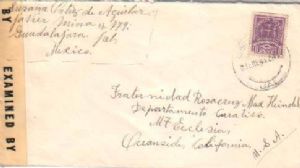 Susana Veliz de Aguilar
Javier Mina # 979.
Guadalajara Jal.
Mexico.
BY
EXAMINED BY
Fraternidad Rosacruz Max Heindel
Departamento
Mt Ecclesia
Oceanside, California.
U.S.A.